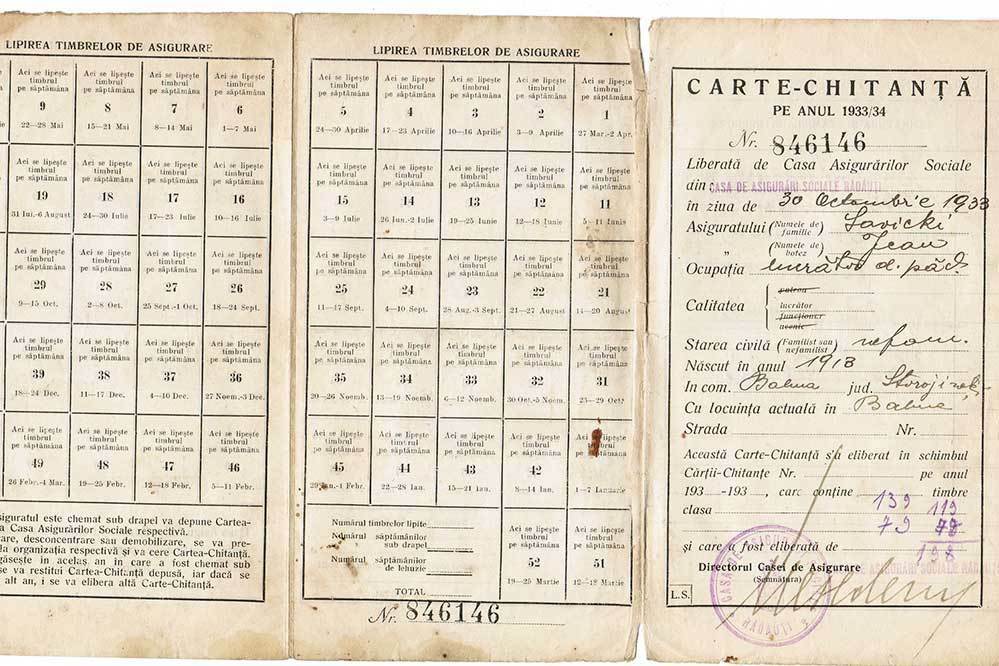 LIPIREA TIMBRELOR DE ASIGURARE
Aci se lipește Aci se lipește Aci se lipește Aci se lipește
timbrul timbrul timbrul timbrul
pe săptămâna pe săptămâna pe săptămâna pe săptămâna
9 8 7 6
22—28 Mai 15—21 Mai 8—14 Mai 1—7 Mai
Aci se lipește Aci se lipește Aci se lipește Aci se lipește
timbrul timbrul timbrul timbrul
pe săptămâna pe săptămâna pe săptămâna pe săptămâna
19 18 17 16
31 Iul.-6 August 24—30 Iulie 17—23 Iulie 10—16 Iulie
Aci se lipește Aci se lipește Aci se lipește Aci se lipește
timbrul timbrul timbrul timbrul
pe săptămâna pe săptămâna pe săptămâna pe săptămâna
29 28 27 26
9—15 Oct. 2—8 Oct. 25 Sept.-1 Oct. 18—24 Sept.
Aci se lipește Aci se lipește Aci se lipește Aci se lipește
timbrul timbrul timbrul timbrul
pe săptămâna pe săptămâna pe săptămâna pe săptămâna
39 38 37 36
18—24 Dec. 11—17 Dec. 4—10 Dec. 27 Noem.-3 Dec.
Aci se lipește Aci se lipește Aci se lipește Aci se lipește
timbrul timbrul timbrul timbrul
pe săptămâna pe săptămâna pe săptămâna pe săptămâna
49 48 47 46
26 Febr.-4 Mar. 19—25 Febr. 12—18 Febr. 5—11 Febr.
siguratul este chemat sub drapel va depune Cartea-
a Casa Asigurărilor Sociale respectivă.
rare, desconcentrare sau demobilizare, se va pre-
da organizația respectivă și va cere Cartea-Chitanță.
găsește în acelaș an în care a fost chemat sub
se va restitui Cartea-Chitanță depusă, iar dacă se
alt an, i se va elibera altă Carte-Chitanță.
LIPIREA TIMBRELOR DE ASIGURARE
Aci se lipește Aci se lipește Aci se lipește Aci se lipește Aci se lipește
timbrul timbrul timbrul timbrul timbrul
pe săptămâna pe săptămâna pe săptămâna pe săptămâna pe săptămâna
5 4 3 2 1
24—30 Aprilie 17—23 Aprilie 10—16 Aprilie 3—9 Aprilie 27 Mar.-2 Apr.
Aci se lipește Aci se lipește Aci se lipește Aci se lipește Aci se lipește
timbrul timbrul timbrul timbrul timbrul
pe săptămâna pe săptămâna pe săptămâna pe săptămâna pe săptămâna
15 14 13 12 11
3—9 Iulie 26 Iun.-2 Iulie 19—25 Iunie 12—18 Iunie 5—11 Iunie
Aci se lipește Aci se lipește Aci se lipește Aci se lipește Aci se lipește
timbrul timbrul timbrul timbrul timbrul
pe săptămâna pe săptămâna pe săptămâna pe săptămâna pe săptămâna
25 24 23 22 21
11—17 Sept. 4—10 Sept. 28 Aug.-3 Sept. 21—27 August 14—20 August
Aci se lipește Aci se lipește Aci se lipește Aci se lipește Aci se lipește
timbrul timbrul timbrul timbrul timbrul
pe săptămâna pe săptămâna pe săptămâna pe săptămâna pe săptămâna
35 34 33 32 31
20—26 Noemb. 13—19 Noemb. 6—12 Noemb. 30 Oct.-5 Noem. 23—29 Oct.
Aci se lipește Aci se lipește Aci se lipește Aci se lipește Aci se lipește
timbrul timbrul timbrul timbrul timbrul
pe săptămâna pe săptămâna pe săptămâna pe săptămâna pe săptămâna
45 44 43 42
29 Ian.-1 Febr. 22—28 Ian. 15—21 Ian. 8—14 Ian. 1—7 Ianuarie
Numărul timbrelor lipite
Numărul săptămânilor
sub drapel
Numărul săptămânilor
de lehuzie
TOTAL
Aci se lipește Aci se lipește
timbrul timbrul
pe săptămâna pe săptămâna
52 51
19—25 Martie 12—18 Martie
Nr. 846146
CARTE-CHITANȚĂ
PE ANUL 1933/34
Nr. 846146
Liberată de Casa Asigurărilor Sociale
din CASA DE ASIGURĂRI SOCIALE RĂDĂUȚI
în ziua de 30 Octombrie 1933
Asiguratului (Numele de familie) Savicki
„ (Numele de botez) Jean
Ocupația lucrător d. păd.
Calitatea
patron
lucrător
funcționar
ucenic
Starea civilă (Familist sau nefamilist) nefam.
Născut în anul 1913
In com. Bahna jud. Storojineț
Cu locuința actuală în Bahne
Strada Nr.
Această Carte-Chitanță s'a eliberat în schimbul
Cărții-Chitanțe Nr. pe anul
193 -193 , care conține 139 119 timbre
clasa 79 78
198
și care a fost eliberată de
CASA DE ASIGURĂRI SOCIALE RĂDĂUȚI
Directorul Casei de Asigurare
(Semnătura)
L.S.